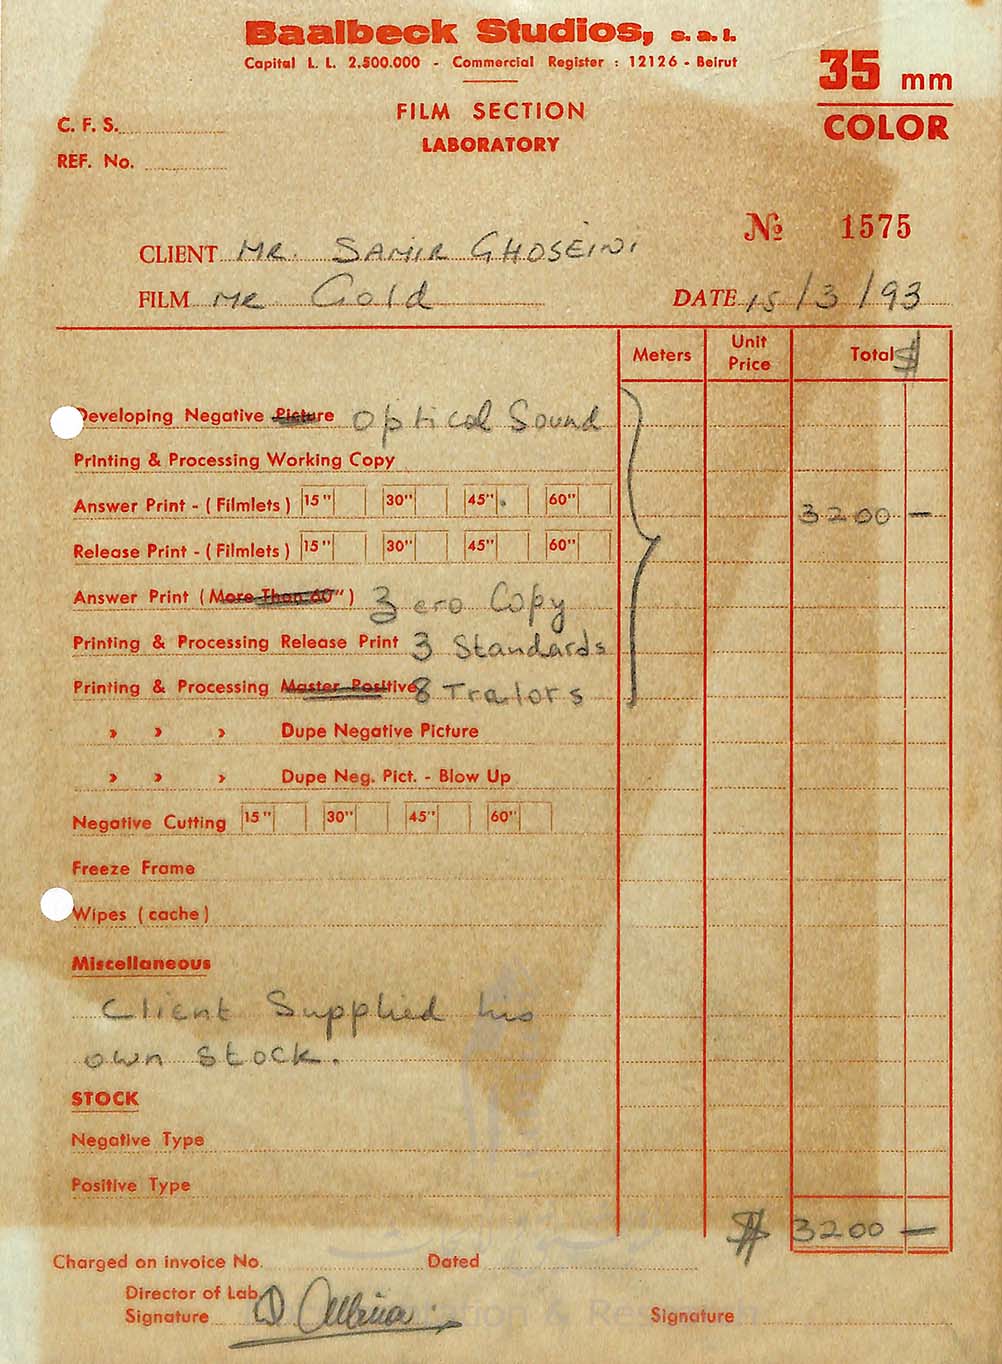 Baalbeck Studios, s. a. l.
Capital L. L. 2.500.000 - Commercial Register : 12126 - Beirut
35 mm
COLOR
FILM SECTION
LABORATORY
C. F. S.
REF. No.
№ 1575
CLIENT MR. SAMIR GHOSEINI
FILM MR Gold
DATE 15/3/93
Meters
Unit Price
Total $
Developing Negative Picture Optical Sound
Printing & Processing Working Copy
Answer Print - ( Filmlets ) 15" 30" 45" 60"
3200 —
Release Print - ( Filmlets ) 15" 30" 45" 60"
Answer Print ( More Than 60" ) Zero Copy
Printing & Processing Release Print 3 Standards
Printing & Processing Master Positive 8 Tralors
» » » Dupe Negative Picture
» » » Dupe Neg. Pict. - Blow Up
Negative Cutting 15" 30" 45" 60"
Freeze Frame
Wipes ( cache )
Miscellaneous
Client Supplied his
own Stock.
STOCK
Negative Type
Positive Type
$ 3200 —
Charged on invoice No. Dated
Director of Lab.
Signature
Signature